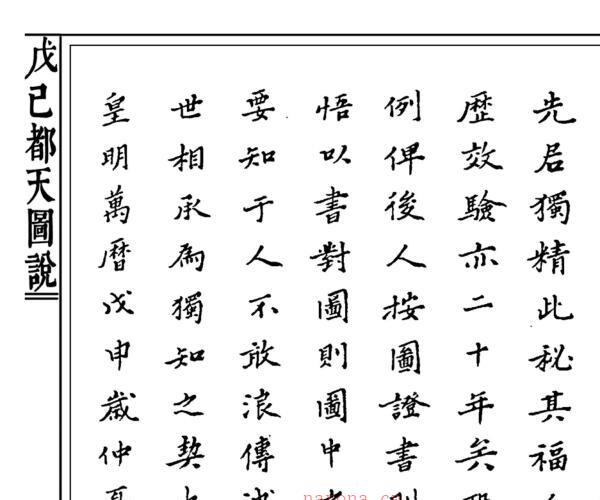 先君獨精此秘其福
歷效驗亦二十年矣
例俾後人按圖證書則
悟以書對圖則圖中
要知于人不敢浪傳
世相承為獨知之契
皇明萬曆戊申歲仲夏
戊己都天圖說